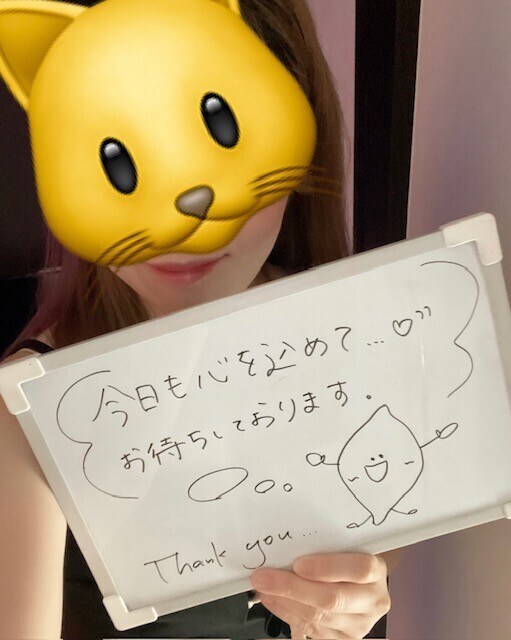 今日も心を込めて…♡
お待ちしております。
Thank you...